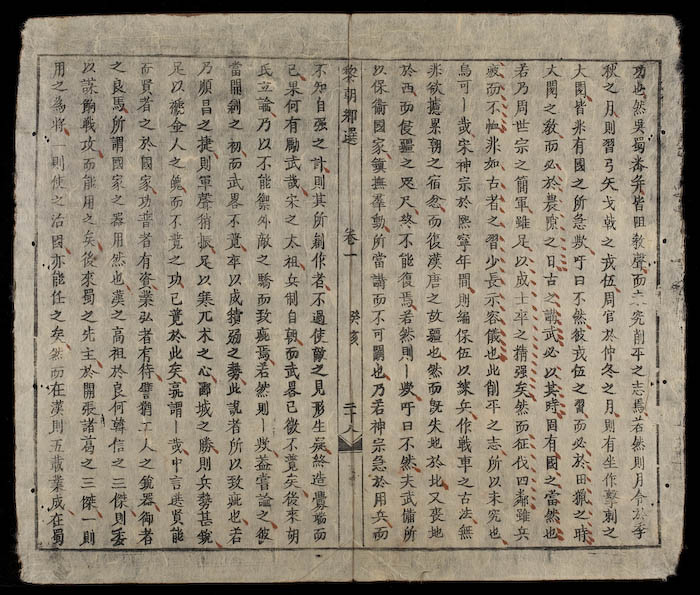 功也然吳蜀潘弁皆阻教聲而未究削平之志焉若然則月令於季
秋之月則習弓矢戈戟之戎伍周官於仲冬之月則有坐作擊刺之
大閱皆非有國之所急歟吁曰不然彼戎伍之習而必於田獵之時
大閱之教而必於農隙之日古之講武必以其時固有國之當然也
若乃周世宗之簡軍雖足以成士卒之精强矣然而征伐四鄰雖兵
疲而不恤非如古者之習少長示容儀也此削平之志所以未究也
烏可一哉宋神宗於熙寧年間則編保伍以練兵作戰車之古法無
非欲攄累朝之宿忿而復漢唐之故疆也然而旣失地於北又喪地
於西而侵疆之咫尺終不能復焉若然則一歟吁曰不然夫武備所
以保衛國家鎭撫羣動所當講而不可闕也乃若神宗急於用兵而
黎朝鄉選 卷一 癸亥 三十八
不知自强之計則其所制作者不過使敵之見形生疑終造釁端而
己果何有勵武哉宋之太祖兵制自朝而武畧已微不競矣後來胡
氏立論乃以不能禦外敵之驕而致疵焉若然則一歟盍嘗論之彼
當開創之初而武畧不競卒以成積弱之勢此說者所以致疵也若
乃順昌之捷則軍聲稍振足以寒兀术之心郾城之勝則兵勢甚銳
足以褫金人之魄而不竟之功已竟於此矣豪謂一哉中言夫賢能
而賢者之於國家功普者有資業弘者有待譬猶工人之銳器御者
之良馬所謂國家之器用然也漢之高祖於良何韓信之三傑則委
以謀餉戰攻而能用之矣後來蜀之先主於開張諸葛之三傑一則
用之爲將一則使之治國亦能任之矣然而在漢則五載業成在蜀